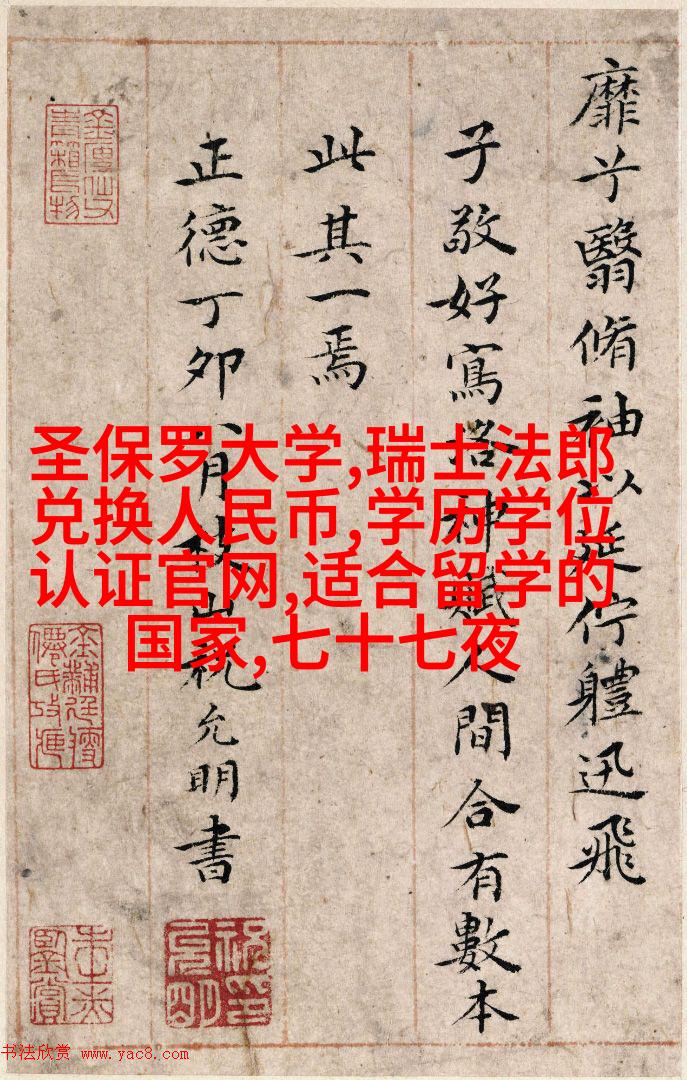 靡兮翳脩袖以延佇體迅飛
子敬好寫洛神賦人間合有數本
此其一焉
正德丁卯八月枝山祝允明書
圣保罗大学,瑞士法郎
兑换人民币,学历学位
认证官网,适合留学的
国家,七十七夜
书法欣赏 www.yac8.com